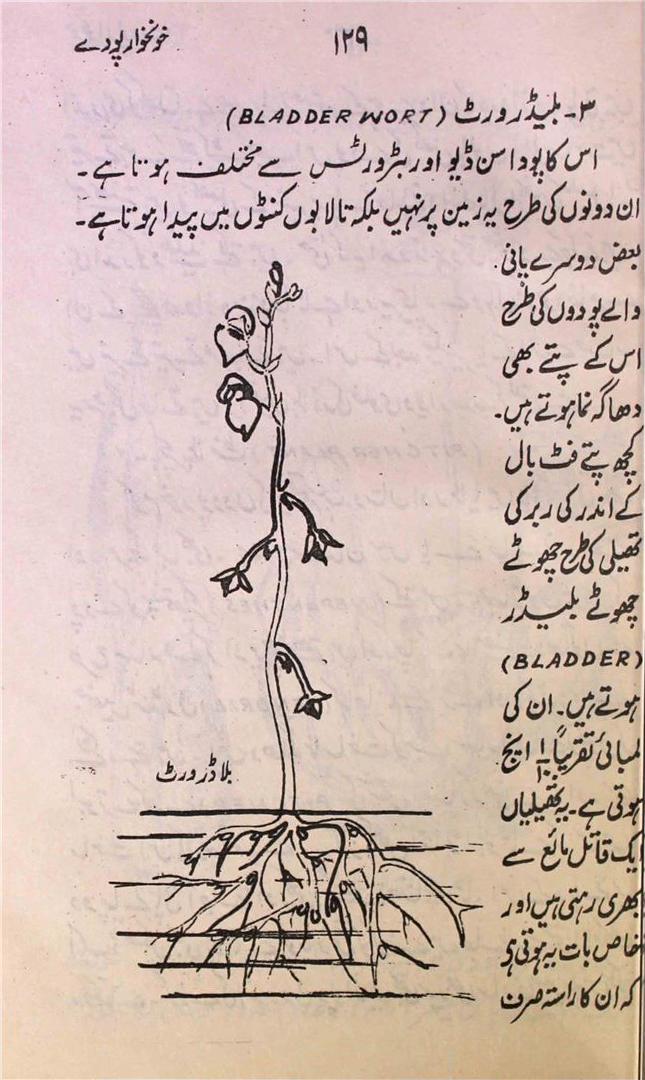 خونخوار پودے
۱۲۹
۳۔ بلیڈر ورٹ (BLADDER WORT)
اس کا پودا سن ڈیو اور بٹر ورٹس سے مختلف ہوتا ہے۔
ان دونوں کی طرح یہ زمین پر نہیں بلکہ تالابوں کنٹوں میں پیدا ہوتا ہے۔
بعض دوسرے پانی
والے پودوں کی طرح
اس کے پتے بھی
دھاگہ نما ہوتے ہیں۔
کچھ پتے فٹ بال
کے اندر کی ربر کی
تھیلی کی طرح چھوٹے
چھوٹے بلیڈر
(BLADDER)
ہوتے ہیں۔ ان کی
لمبائی تقریباً ۱/۱۰ انچ
ہوتی ہے۔ یہ تھیلیاں
ایک قاتل مائع سے
بھری رہتی ہیں اور
خاص بات یہ ہوتی ہے
کہ ان کا راستہ صرف
بلاڈر ورٹ